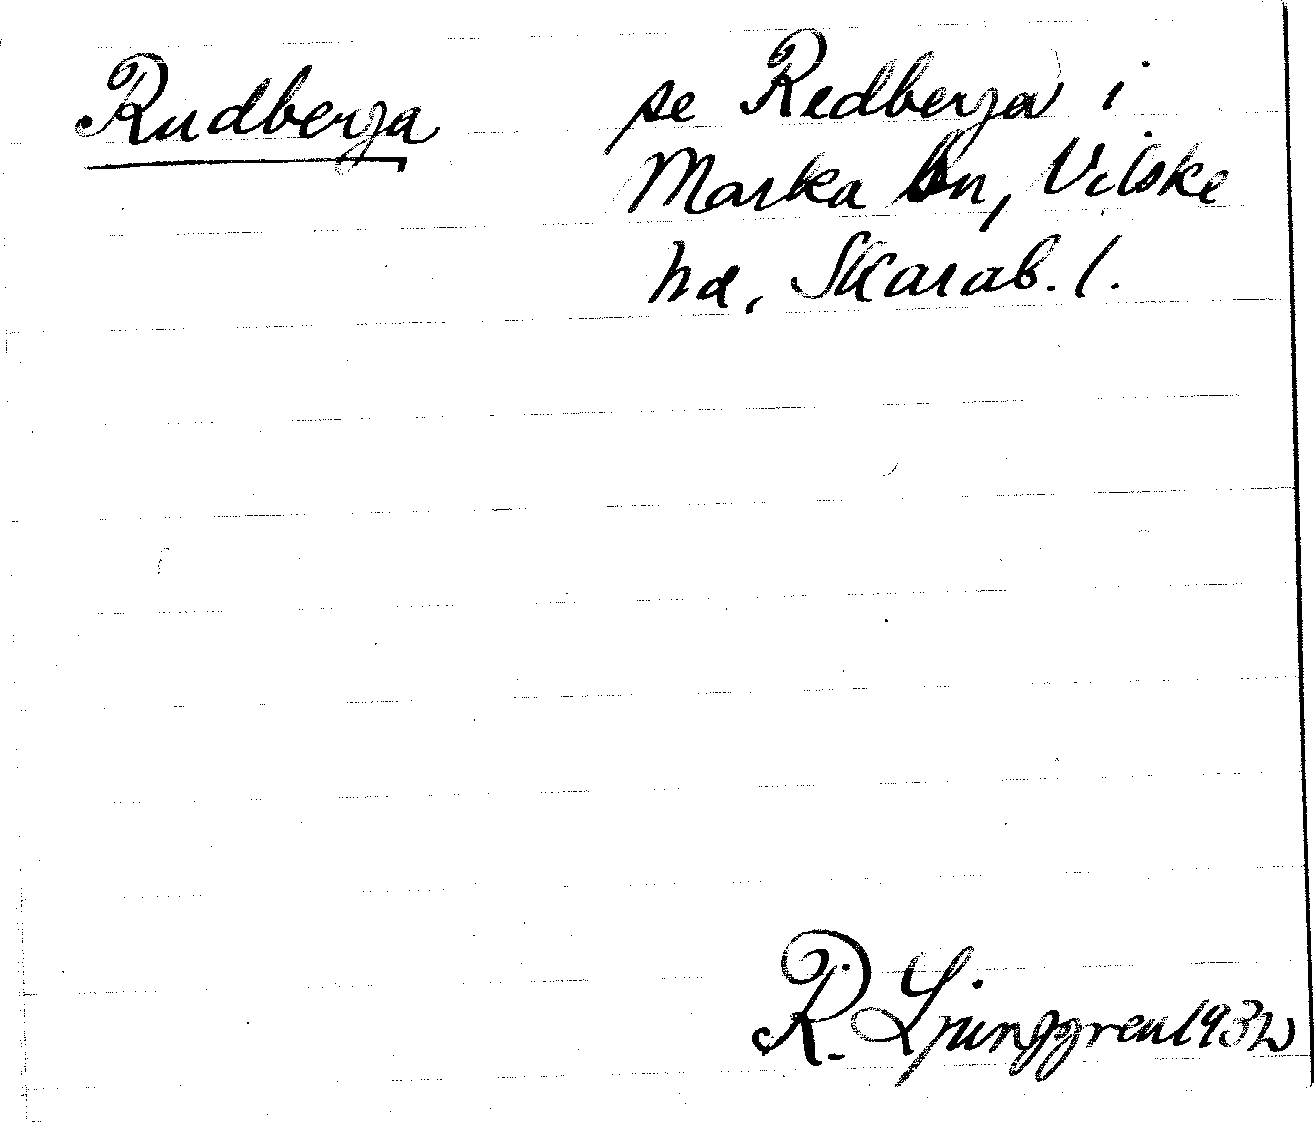 Rudberga se Redberga i
Marka sn, Vilske
hd, Skarab. l.
R. Ljunggren 1932